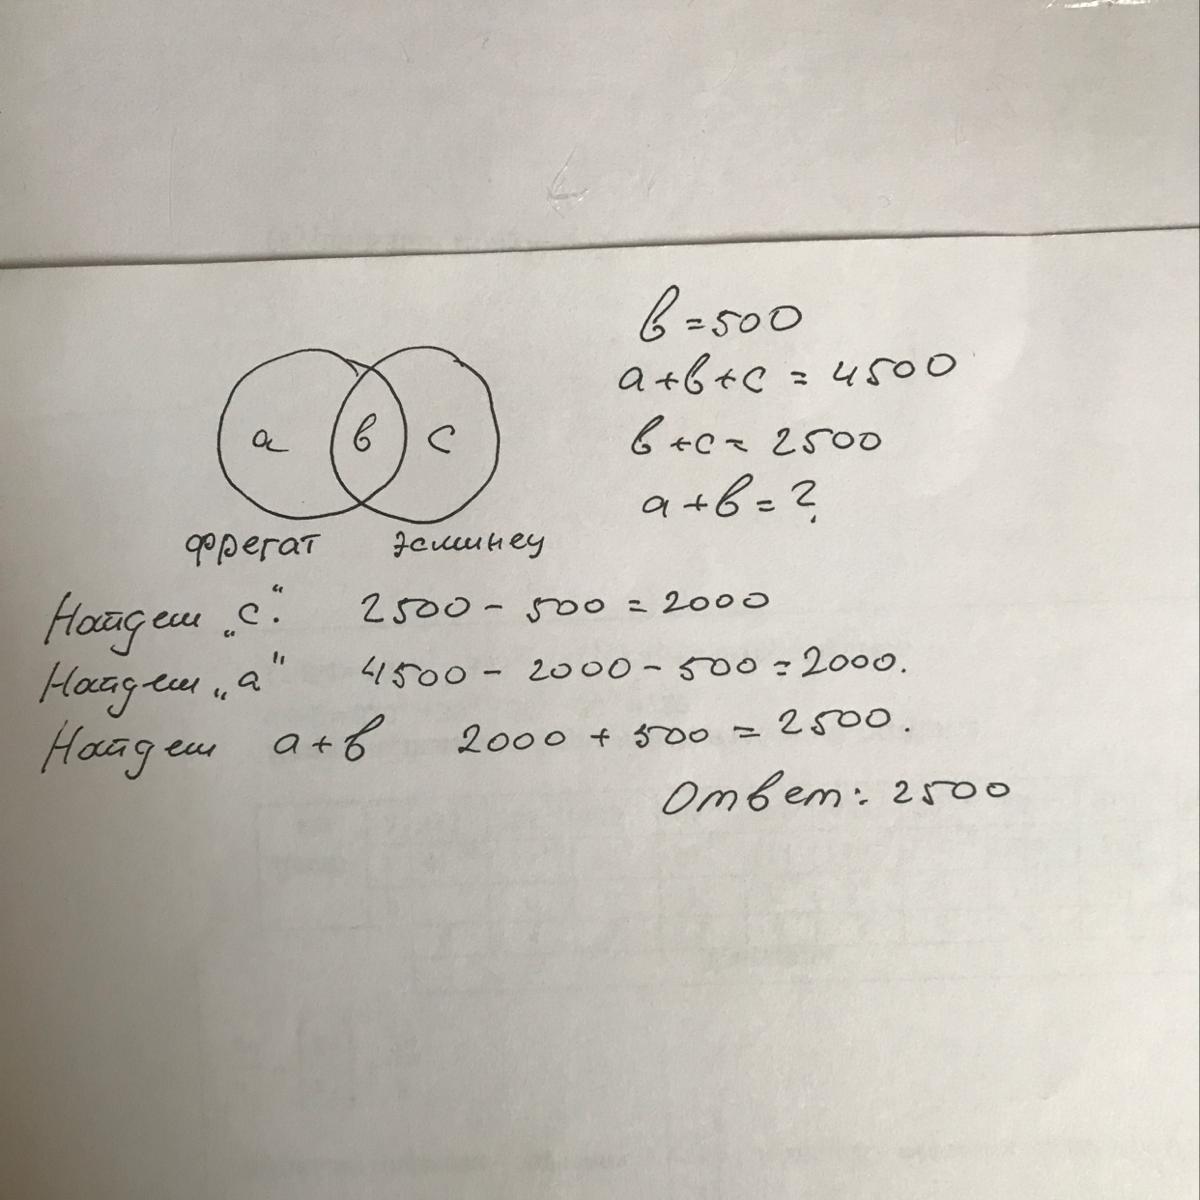 в = 500
а + в + с = 4500
в + с = 2500
а + в = ?
а в с
фрегат эсминец
Найдем „с“. 2500 - 500 = 2000
Найдем „а“ 4500 - 2000 - 500 = 2000.
Найдем а + в 2000 + 500 = 2500.
Ответ: 2500